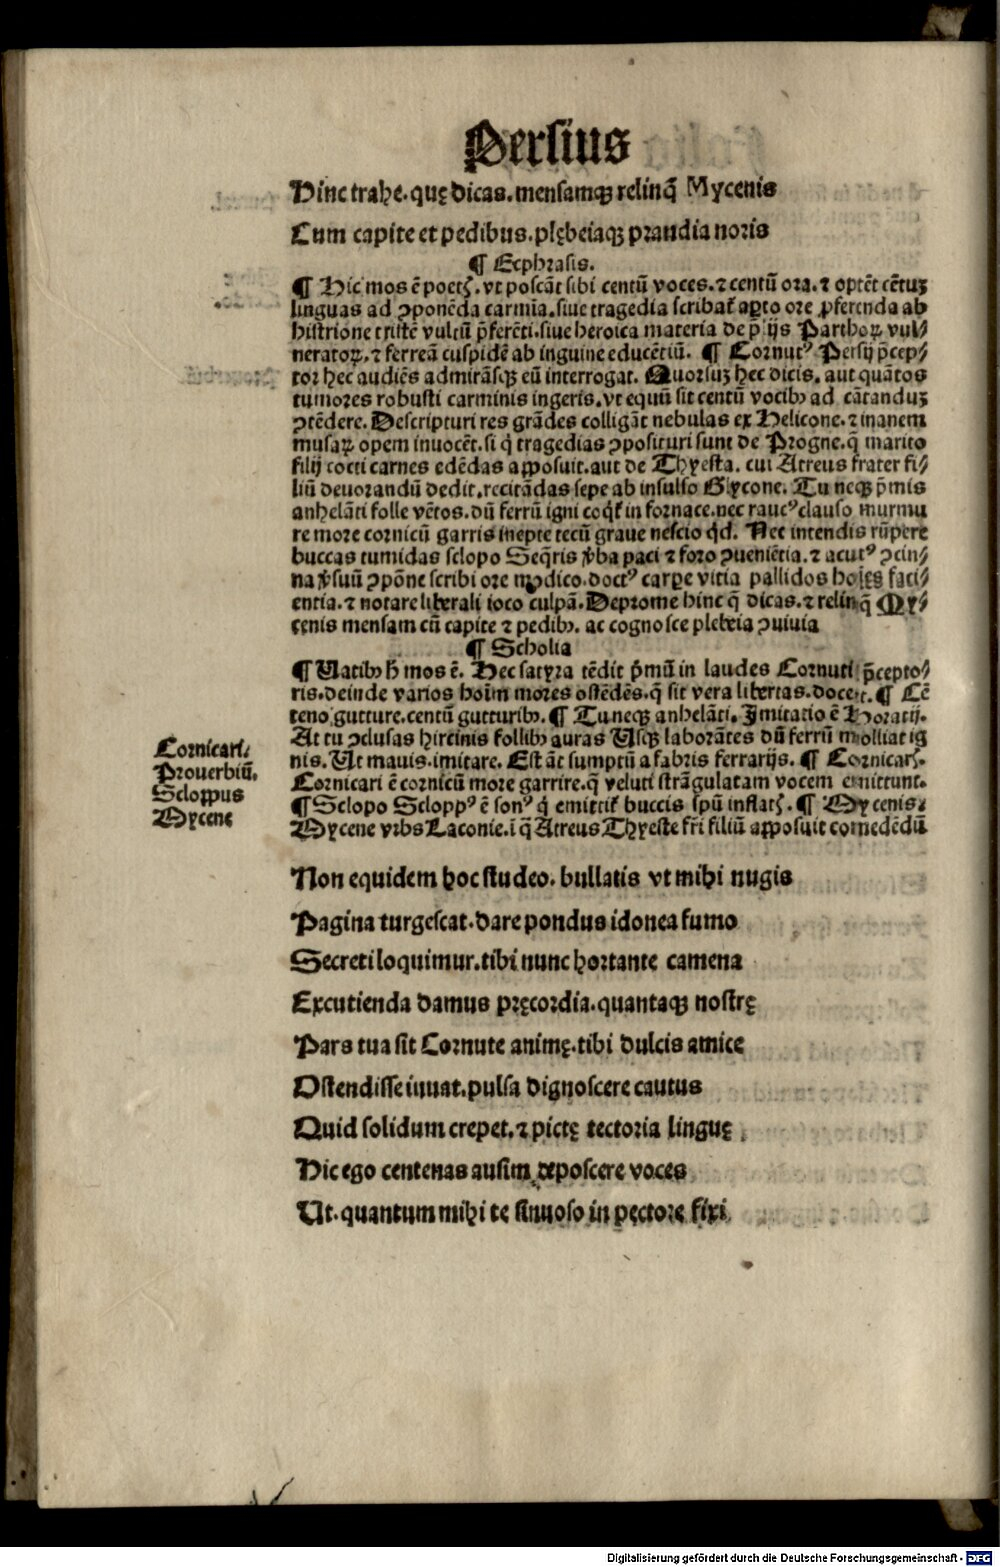 Persius
Hinc trahe. quę dicas. mensamqꝫ relinq̄ Mycenis
Cum capite et pedibus. plębeiaqꝫ prandia noris
¶ Ecphrasis.
¶ Hic mos ē poetꝭ. vt poscāt sibi centū voces. ⁊ centū ora. ⁊ optēt cētuꝫ
linguas ad ꝓponēda carmīa. siue tragedia scribat᷑ aꝑto ore ꝓferenda ab
histrione tristē vultū p̄ferēti. siue heroica materia de p̄lijs Parthoꝝ vul⸗
neratoꝝ. ⁊ ferreā cuspidē ab inguine educētiū. ¶ Cornutꝰ Persij p̄cep⸗
tor hec audiēs admirāsqꝫ eū interrogat. Quorsuꝫ hec dicis. aut quātos
tumores robusti carminis ingeris. vt equū sit centū vocibꝫ ad cātanduꝫ
ꝯtēdere. Descripturi res grādes colligāt nebulas ex Helicone. ⁊ inanem
musaꝝ opem inuocēt. si q̇ tragedias ꝯposituri sunt de Progne. q̄ marito
filij cocti carnes edēdas apposuit. aut de Thyesta. cui Atreus frater fi⸗
liū deuorandū dedit. recitādas sepe ab insulso Glycone. Tu neqꝫ p̄mis
anhelāti folle vētos. dū ferrū igni coq̇t᷑ in fornace. nec raucꝰ clauso murmu
re more cornicū garris inepte tecū graue nescio qd̓. Nec intendis rūpere
buccas tumidas sclopo Seq̄ris v̓ba paci ⁊ foro ꝯueniētia. ⁊ acutꝰ ꝯcin⸗
na v̓suū ꝯpōne scribi ore modico. doctꝰ carpe vitia pallidos hoīes faci⸗
entia. ⁊ notare liberali ioco culpā. Deprome hinc q̄ dicas. ⁊ relinq̄ My⸗
cenis mensam cū capite ⁊ pedibꝫ. ac cognosce plebeia ꝯuiuia
¶ Scholia
¶ Vatibꝫ h̄ mos ē. Hec satyra tēdit p̄mū in laudes Cornuti p̄cepto⸗
ris. deinde varios hoīm mores ostēdēs. q̄ sit vera libertas. docet. ¶ Cē
teno gutture. centū gutturibꝫ. ¶ Tu neqꝫ anhelāti. Imitatio ē Horatij.
At tu ꝯclusas hircinis follibꝫ auras Usqꝫ laborātes dū ferrū molliat ig
nis. Ut mauis. imitare. Est āt sumptū a fabris ferrarijs. ¶ Cornicarꝭ.
Cornicari ē cornicū more garrire. q̄ veluti strāgulatam vocem emittunt.
¶ Sclopo Scloppꝰ ē sonꝰ q̇ emittit᷑ buccis spū inflatꝭ. ¶ Mycenis.
Mycene vrbs Laconie. ī q̄ Atreus Thyeste fr̄i filiū apposuit comedēdū
Cornicari.
Prouerbiū.
Scloppus
Mycene
Non equidem hoc studeo. bullatis vt mihi nugis
Pagina turgescat. dare pondus idonea fumo
Secreti loquimur. tibi nunc hortante camena
Excutienda damus pręcordia. quantaqꝫ nostrę
Pars tua sit Cornute animę. tibi dulcis amice
Ostendisse iuuat. pulsa dignoscere cautus
Quid solidum crepet. ⁊ pictę tectoria linguę
Hic ego centenas ausim deposcere voces
Ut. quantum mihi te sinuoso in pectore fixi
Digitalisierung gefördert durch die Deutsche Forschungsgemeinschaft - DFG